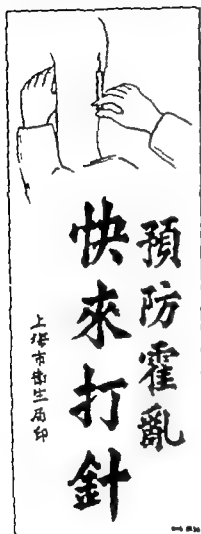 預防霍亂
快來打針
上海市衛生局印